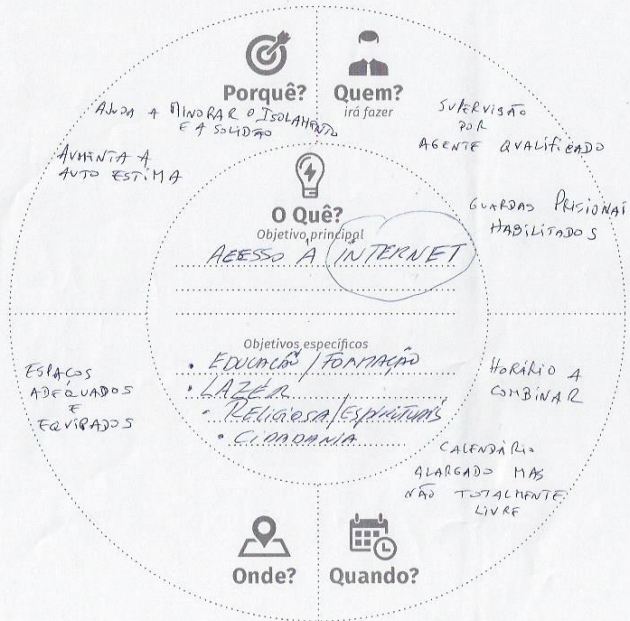 Porquê?
AJUDA A MINORAR O ISOLAMENTO
E A SOLIDÃO
AUMENTA A
AUTO ESTIMA
Quem?
irá fazer
SUPERVISÃO
POR
AGENTE QUALIFICADO
GUARDAS PRISIONAI
HABILITADOS
O Quê?
Objetivo principal
ACESSO À INTERNET
Objetivos específicos
• EDUCAÇÃO / FORMAÇÃO
• LAZER
• RELIGIOSA / ESPIRITUAIS
• CIDADANIA
ESPAÇOS
ADEQUADOS
E
EQUIPADOS
Onde?
HORÁRIO A
COMBINAR
CALENDÁRIO
ALARGADO MAS
NÃO TOTALMENTE
LIVRE
Quando?